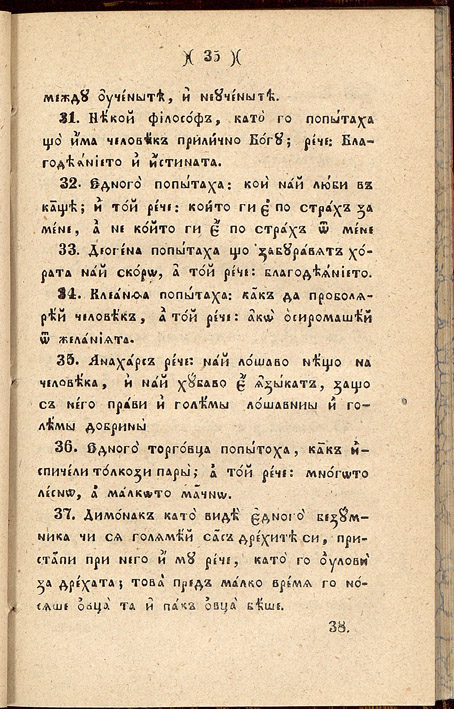 )( 35 )(
междꙋ ᲂу҆че́нытѣ, и҆ неꙋче́нытѣ.
31. Нѣ́кой фїлосо́фъ, като̀ го попы́таха
що̀ и҆́ма человѣ́къ прили́чно Бо́гꙋ; ре́че: Бла-
годѣѧ́нїето и҆ и҆́стината.
32. Е҆дного̀ попы́таха: кои на́й лю́би въ
ка́щѣ; и҆ то́й ре́че: който ги є҆̀ по стра́хъ за
ме́не, а҆ не ко́йто ги є҆̀ по стра́хъ ѿ ме́не
33. Дїоге́на попы́таха що забꙋра́вѧтъ хо́-
рата на́й ско́рѡ, а҆ то́й ре́че: благодѣѧ́нїето.
34. Клеа́нѳа попы́таха: ка́къ да проболѧ-
рѣ́й человѣ́къ, а҆ то́й ре́че: а҆кѡ̀ ѡ҆сиромашѣ́й
ѿ жела́нїѧта.
35. Анаха́рсъ ре́че: на́й ло́шаво нѣ́що на
человѣ́ка, и҆ на́й хꙋ́баво є҆̀ ѧ҆зы́катъ, защо
съ не́го пра́ви и҆ голѣ́мы лошавины̀ и҆ го-
лѣ́мы добрины̀
36. Е҆дного̀ торго́вца попы́тоха, ка́къ и҆-
спичели то́лкози пары̀; а҆ то́й ре́че: мно́гѡто
ле́снѡ, а҆ ма́лкѡто ма́чнѡ.
37. Димо́накъ като̀ видѐ є҆дного̀ безꙋ́м-
ника чи сѧ голѧмѣ́й са́съ дре́хитѣ си, при-
ста́пи при него̀ и҆ мꙋ ре́че, като̀ го ᲂу҆ловѝ
за дре́хата; това̀ предъ ма́лко вре́мѧ го но́-
сѧше ѻ҆вца̀ та и҆ па́къ ѻ҆вца̀ бѣ́ше.
38.